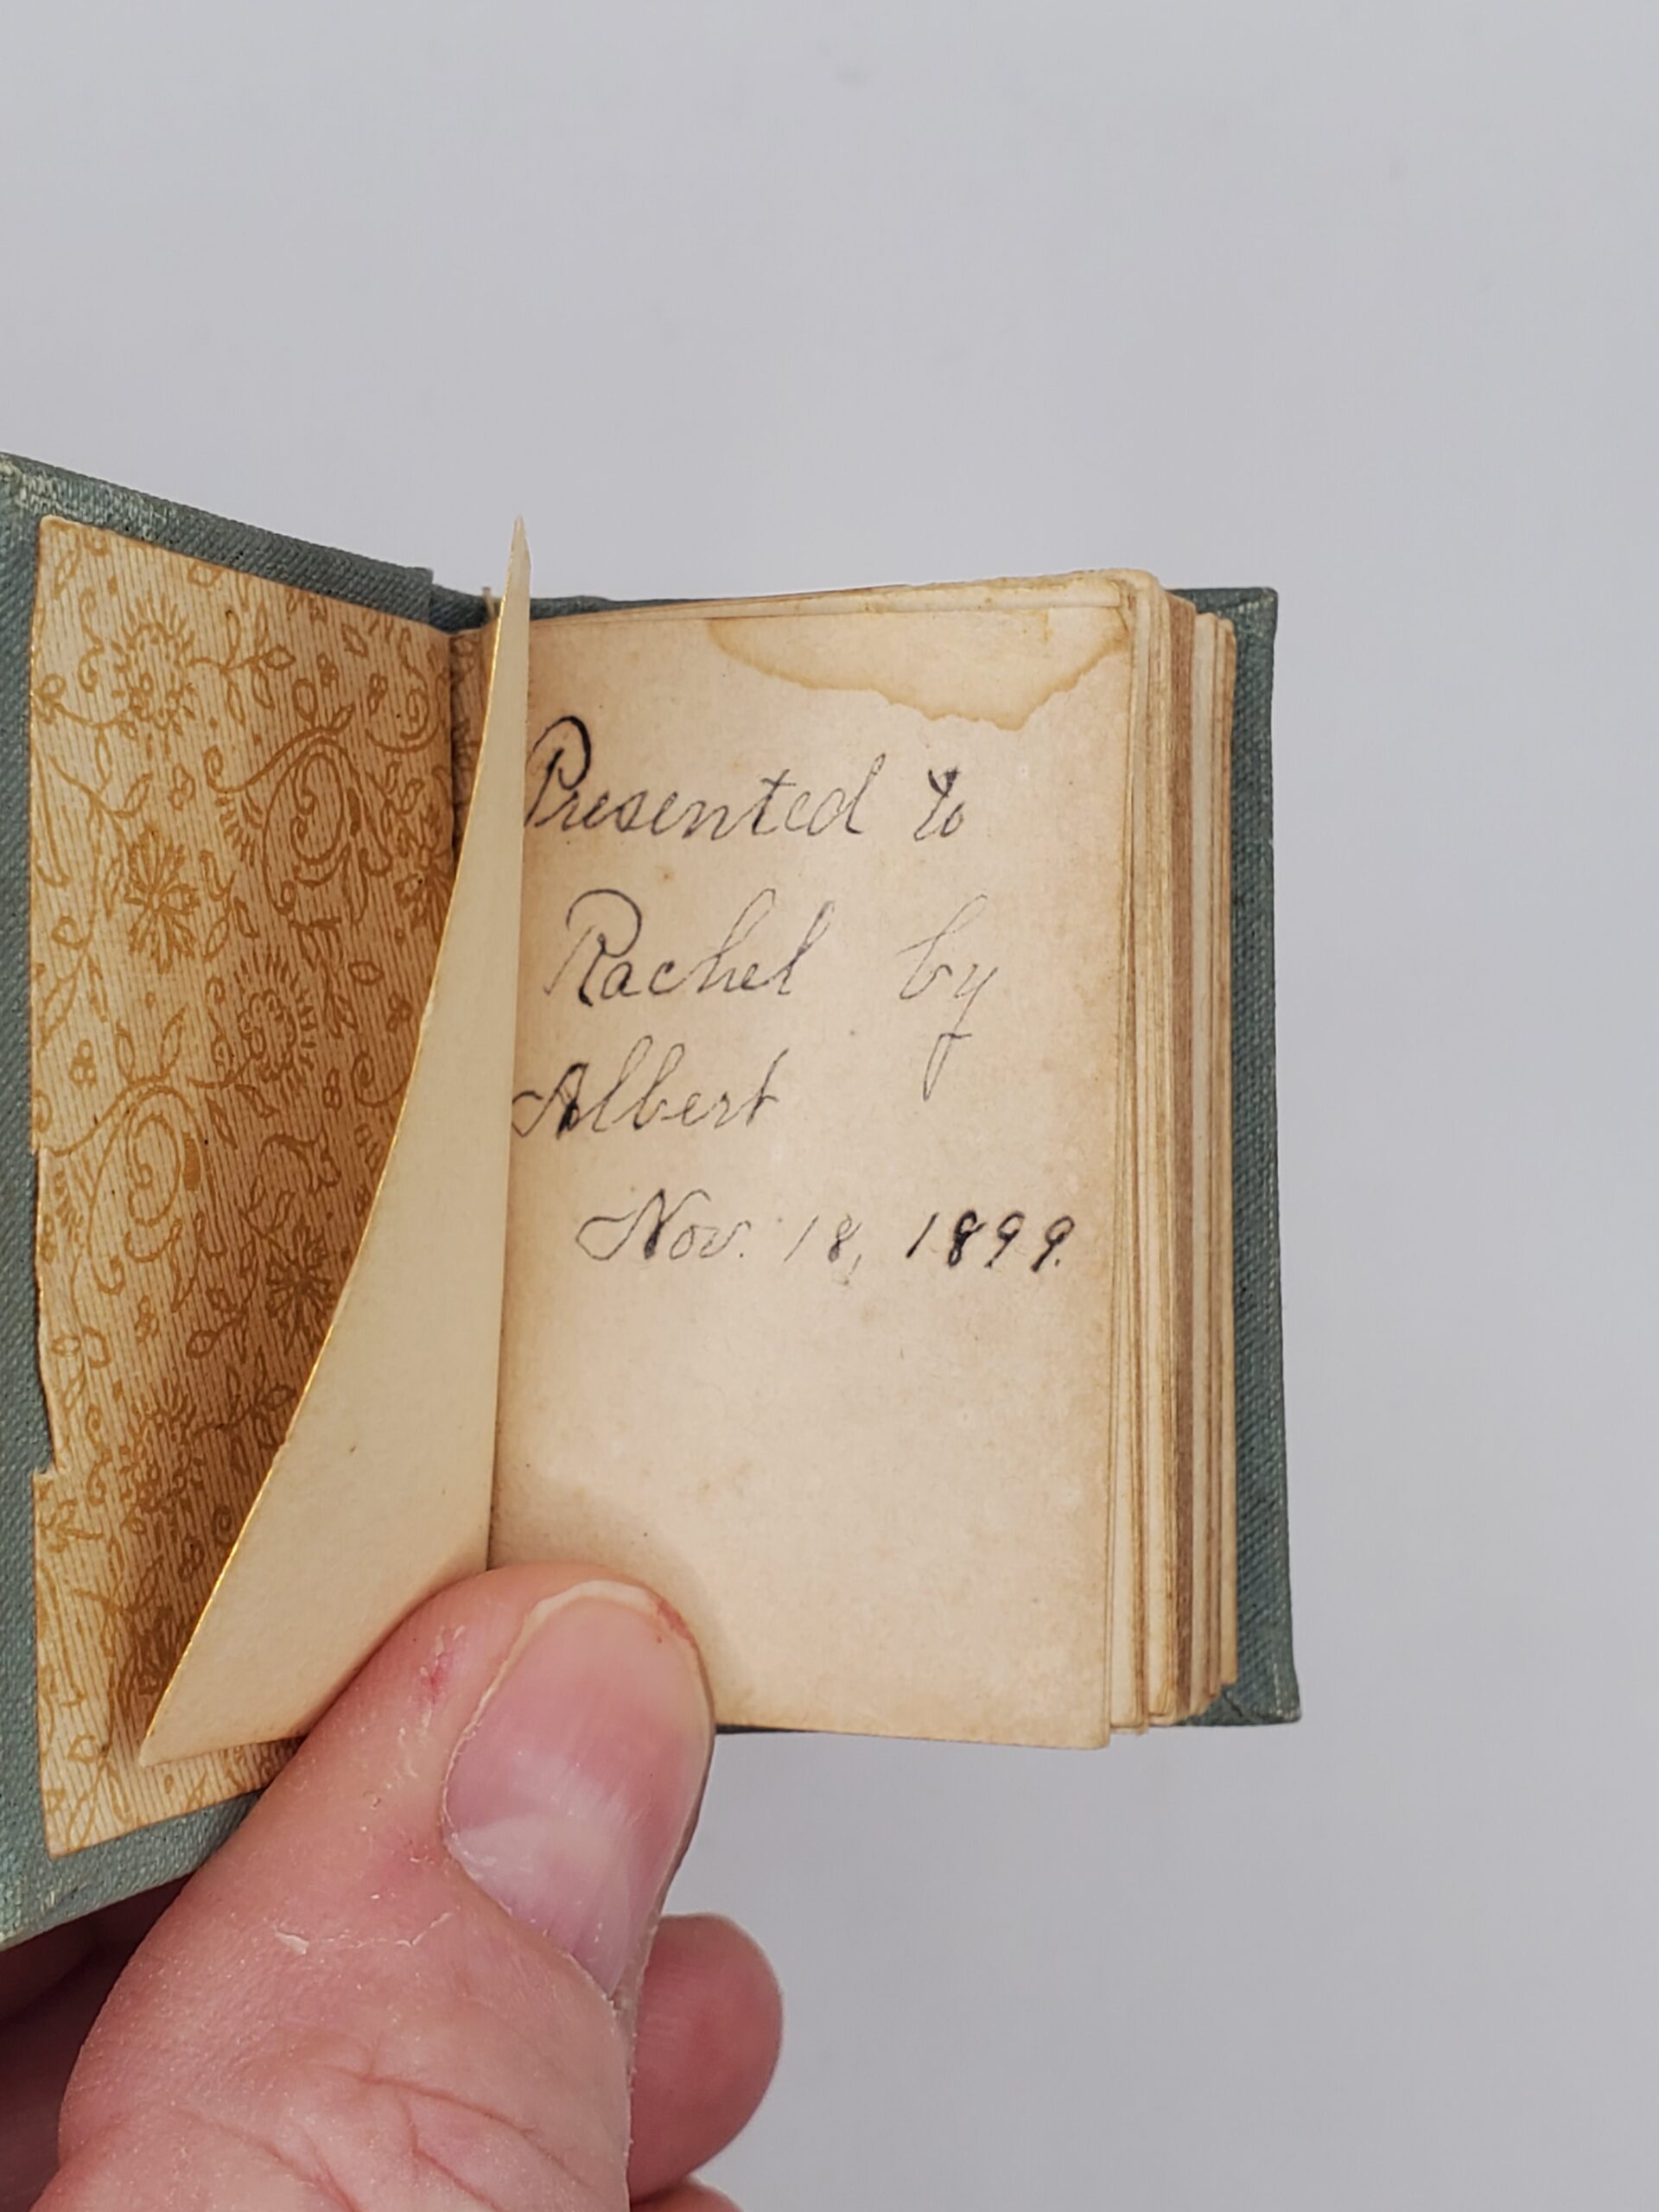 Presented to
Rachel by
Albert
Nov. 18, 1899.